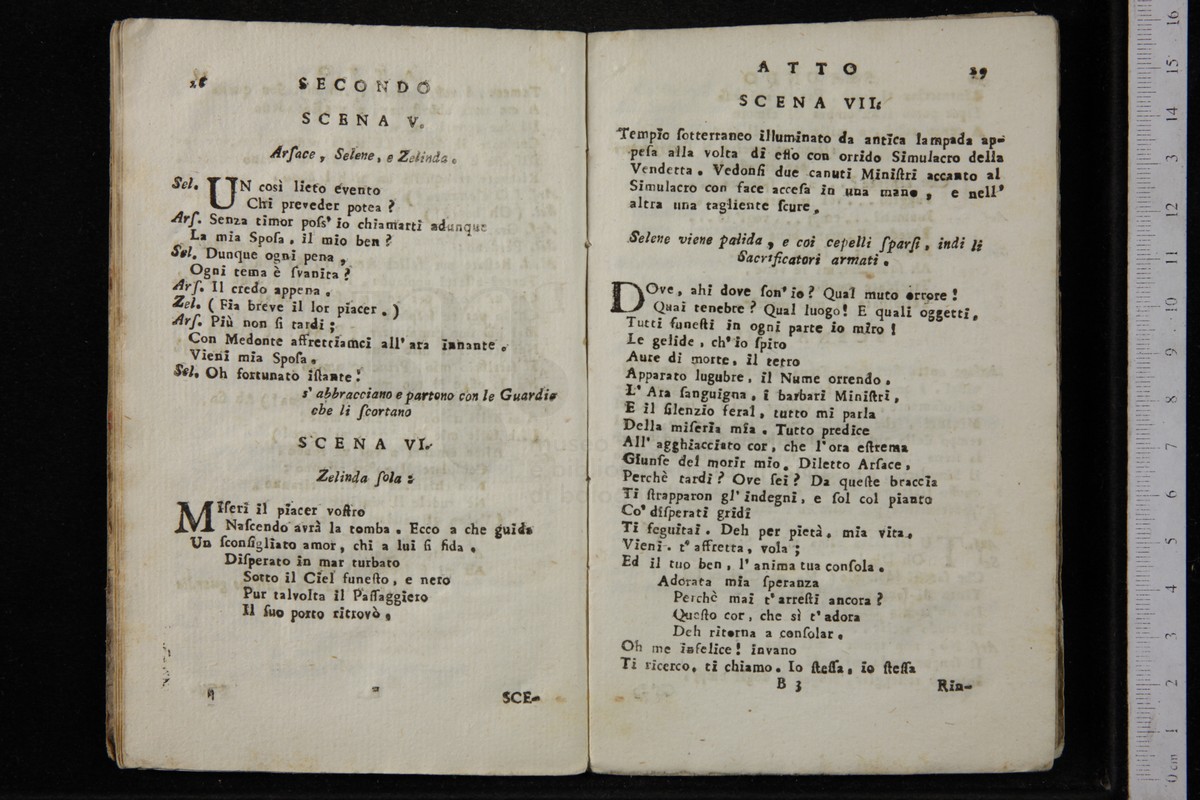 28
SECONDO
SCENA V.
Arſace, Selene, e Zelinda.
Sel. UN così lieto evento
Chi preveder potea?
Arſ. Senza timor poſs' io chiamarti adunque
La mia Spoſa, il mio ben?
Sel. Dunque ogni pena,
Ogni tema è ſvanita?
Arſ. Il credo appena.
Zel. (Fia breve il lor piacer.)
Arſ. Più non ſi tardi;
Con Medonte affrettiamci all' ara innante.
Vieni mia Spoſa.
Sel. Oh fortunato iſtante!
s' abbracciano e partono con le Guardie
che li ſcortano
SCENA VI.
Zelinda ſola:
MIſeri il piacer voſtro
Naſcendo avrà la tomba. Ecco a che guida
Un ſconſigliato amor, chi a lui ſi fida.
Diſperato in mar turbato
Sotto il Ciel funeſto, e nero
Pur talvolta il Paſſaggiero
Il ſuo porto ritrovò.
SCE-
ATTO
29
SCENA VII.
Tempio ſotterraneo illuminato da antica lampada ap-
peſa alla volta di eſſo con orrido Simulacro della
Vendetta. Vedonſi due canuti Miniſtri accanto al
Simulacro con face acceſa in una mano, e nell'
altra una tagliente ſcure.
Selene viene palida, e coi cepelli ſparſi, indi li
Sacrificatori armati.
DOve, ahi dove ſon' io? Qual muto orrore!
Quai tenebre? Qual luogo! E quali oggetti,
Tutti funeſti in ogni parte io miro!
Le gelide, ch' io ſpiro
Aure di morte, il tetro
Apparato lugubre, il Nume orrendo,
L' Ara ſanguigna, i barbari Miniſtri,
E il ſilenzio feral, tutto mi parla
Della miſeria mia. Tutto predice
All' agghiacciato cor, che l' ora eſtrema
Giunſe del morir mio. Diletto Arſace,
Perchè tardi? Ove ſei? Da queſte braccia
Ti ſtrapparon gl' indegni, e ſol col pianto
Co' diſperati gridi
Ti ſeguitai. Deh per pietà, mia vita,
Vieni. t' affretta, vola;
Ed il tuo ben, l' anima tua conſola.
Adorata mia ſperanza
Perchè mai t' arreſti ancora?
Queſto cor, che sì t' adora
Deh ritorna a conſolar.
Oh me infelice! invano
Ti ricerco, ti chiamo. Io ſteſſa, io ſteſſa
B 3
Rin-
0 cm 1 2 3 4 5 6 7 8 9 10 11 12 13 14 15 16